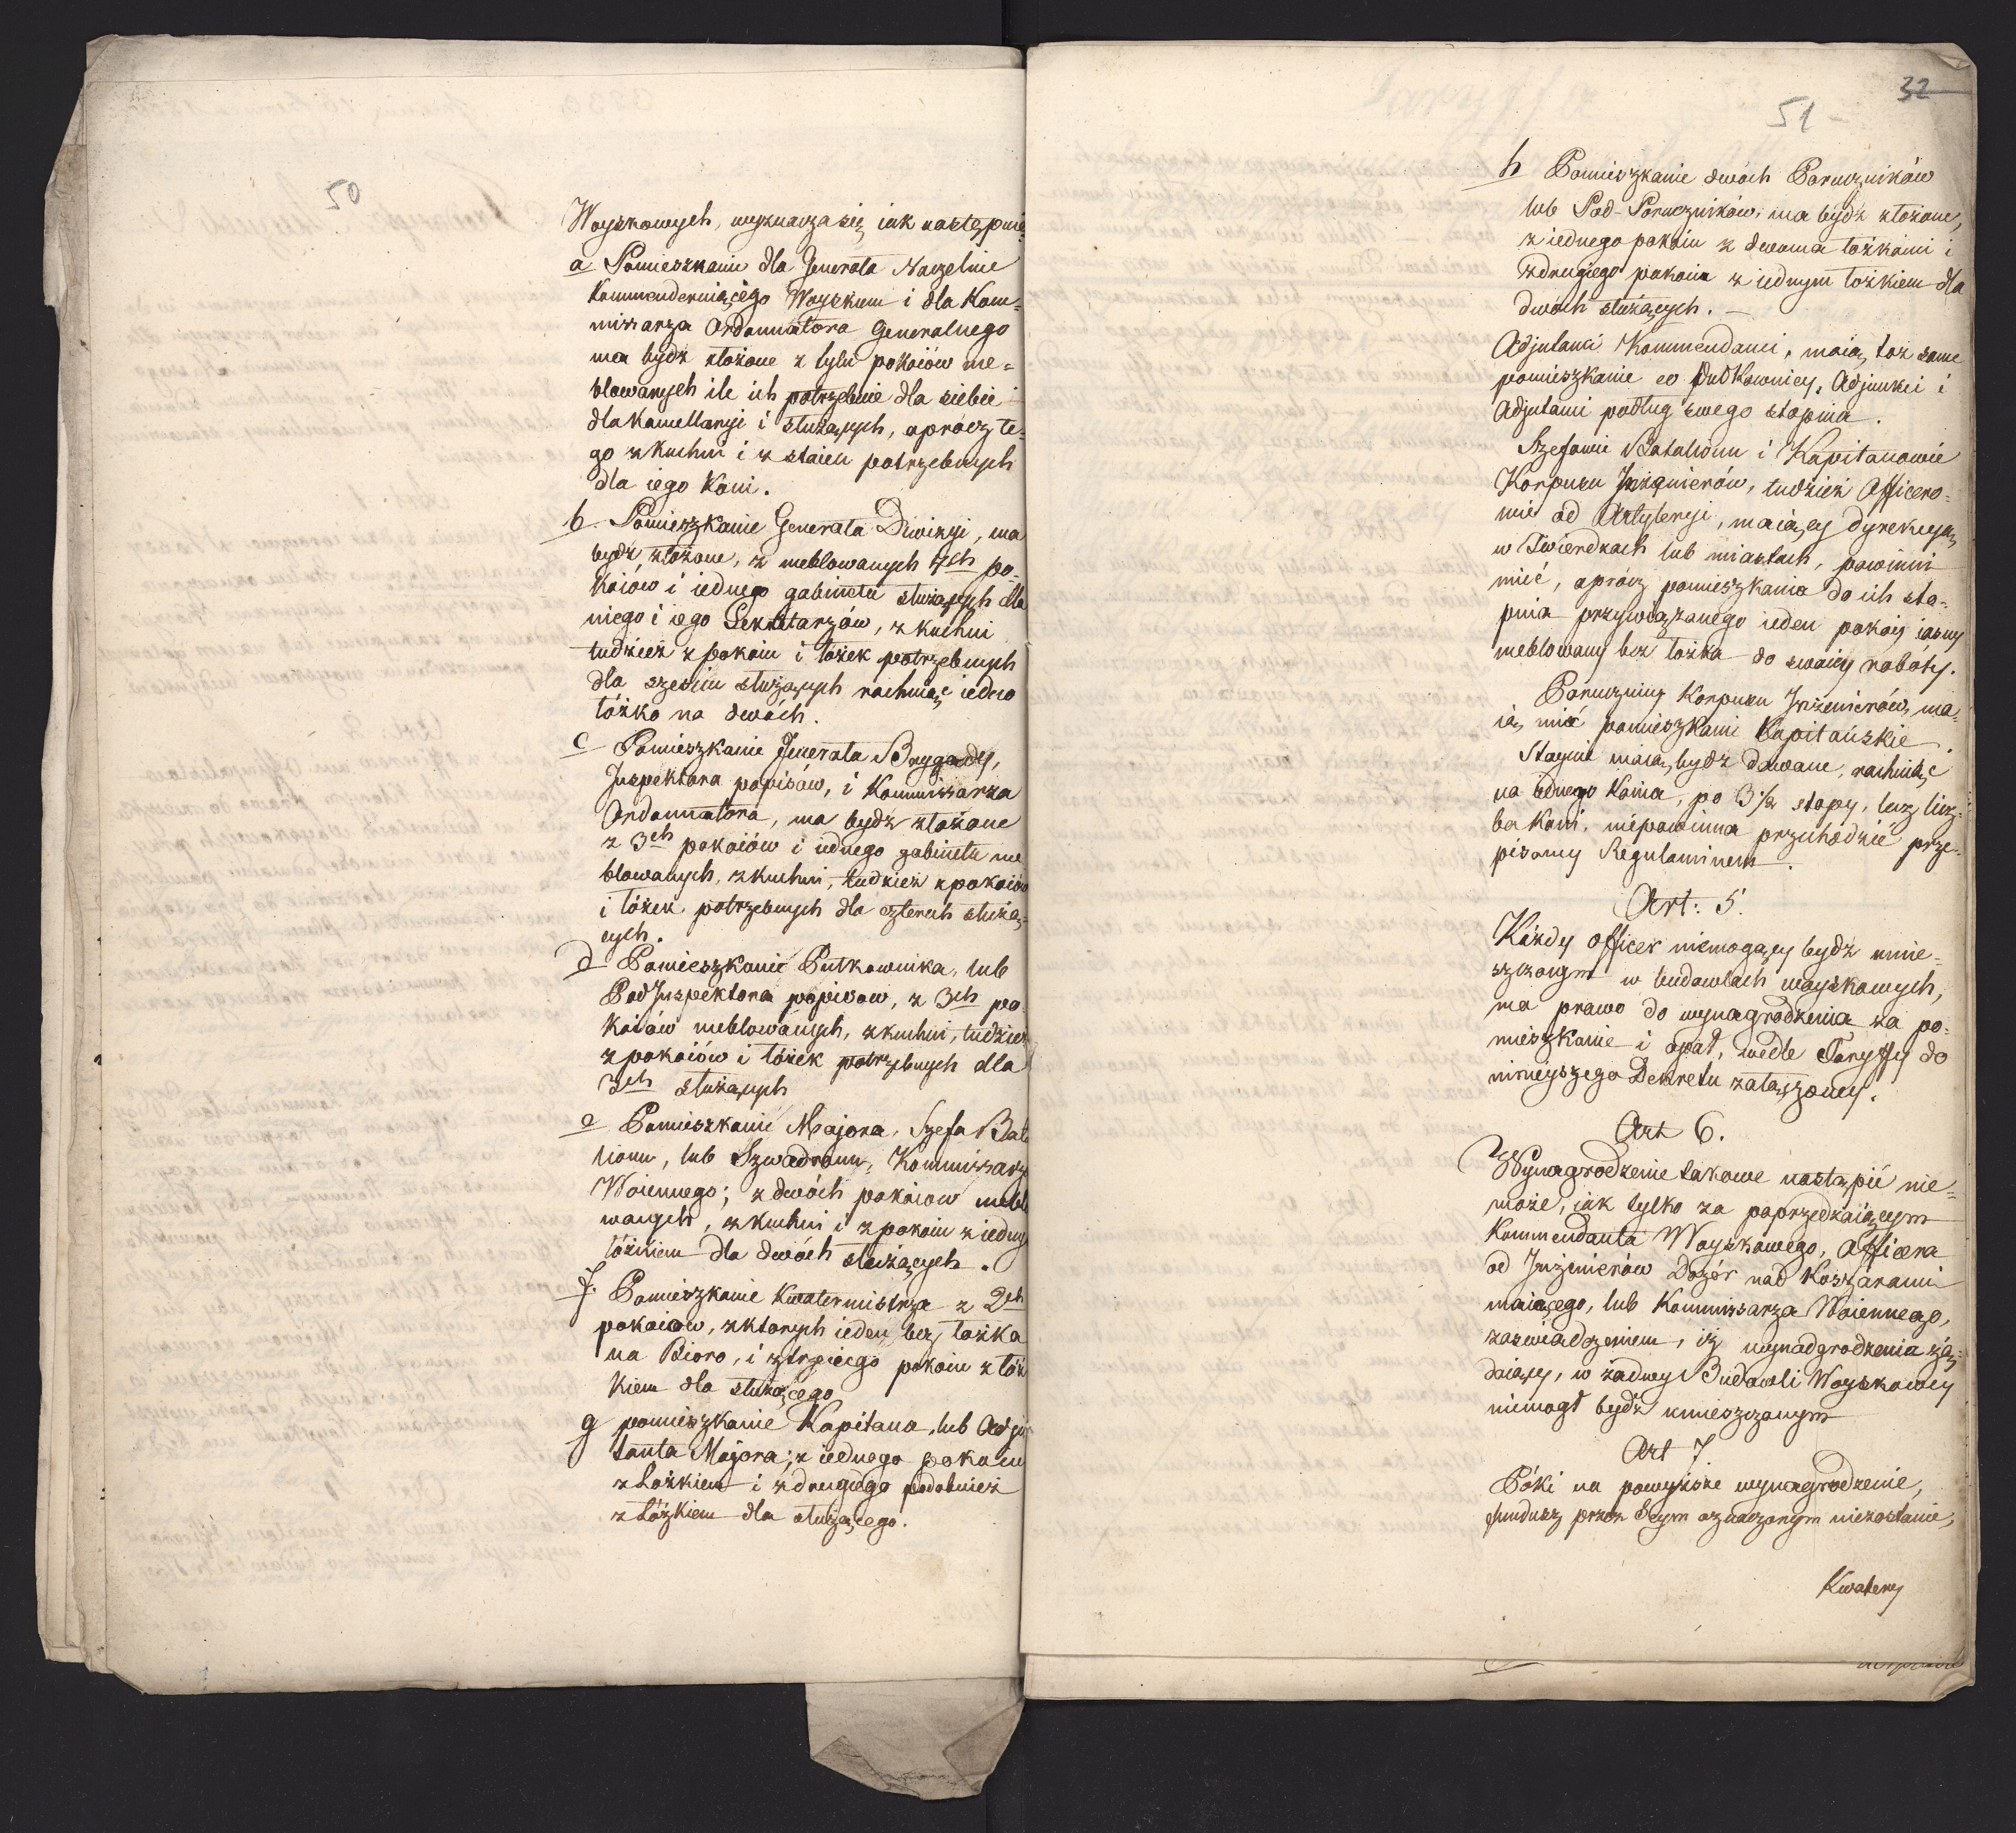 50
Woyskowych, wyznacza się iak następnie
a Pomieszkanie dla Jenerała Naczelnie
Kommenderuiącego Woyskiem i dla Kom=
missarza Ordonnatora Generalnego
ma bydz złożone z tylu pokoiów me=
blowanych ile ich potrzebnie dla siebie i
dla kancellaryi i służących, oprócz te=
go z kuchni i z staien potrzebnych
dla iego Koni.
b. Pomieszkanie Generała Diwizyi, ma
bydz złożone, z meblowanych 7ch po=
koiów i iednego gabinetu służących dla
niego i iego Sekretarzów, z kuchni
tudzież z pokoiu i łożek potrzebnych
dla sześciu służących rachuiąc iedno
łóżko na dwóch.
c Pomieszkanie Jenerała Brygady,
Inspektora popisów, i Kommissarza
Ordonnatora, ma bydz złożone
z 3ch pokoiów i iednego gabinetu me
blowanych, z kuchni, tudzież z pokoiów
i łóżek potrzebnych dla czterech służą=
cych.
d Pomieszkanie Pułkownika, lub
PodInspektora popisow, z 3ch po=
koiów meblowanych, z kuchni, tudzież
z pokoiów i łóżek potrzebnych dla
3ch służących
e Pomieszkanie Majora, Szefa Bata
lionu, lub Szwadronu, Kommissarza
Woiennego; z dwóch pokoiow meblo
wanych, z kuchni i z pokoiu z iednym
łóżkiem dla dwóch służących.
f. Pomieszkanie Kwatermistrza z 2ch
pokoiow, z ktorych ieden bez łożka
na Bioro, i z trzeciego pokoiu z łóż
kiem dla służącego
g pomieszkanie Kapitana, lub Adju
tanta Majora; z iednego pokoiu
z łożkiem i z drugiego podobnież
z łóżkiem dla służącego.
32
51
h Pomieszkanie dwóch Poruczników
lub Pod-Poruczników, ma bydź złożone,
z iednego pokoiu z dwoma łożkami i
z drugiego pokoiu z iednym łożkiem dla
dwóch służących.
Adjutanci Kommendanci, maią toż same
pomieszkanie co Pułkownicy, Adjunkci i
Adjutanci podług swego stopnia.
Szefowie Batalionu i Kapitanowie
Korpusu Inżenierów, tudzież Officero=
wie od Artyleryi, maiący dyrekcyą
w Twierdzach lub miastach, powinni
mieć, oprócz pomieszkania do ich sto=
pnia przywiązanego ieden pokóy iasny
meblowany bez łożka do swoiey roboty.
Porucznicy Korpusu Inżenierów, ma=
ią mieć pomieszkani Kapitańskie.
Staynie maią bydź dawane, rachuiąc
na iednego Konia, po 3 1/2 stopy, lecz licz=
ba Koni, niepowinna przechodzić prze=
pisaney Regulaminem.
Art: 5.
Każdy officer niemogący bydź umie=
szczonym w budowlach woyskowych,
ma prawo do wynagrodzenia za po=
mieszkanie i opał, wedle Taryffy do
ninieyszego Dekretu załączoney.
Art 6.
Wynagrodzenie takowe nastąpić nie=
może, iak tylko za poprzedzaiącym
Kommendanta Woyskowego, Officera
od Inżinierów Dozór nad Koszarami
maiącego, lub Kommissarza Woiennego,
zaświadczeniem, iż wynadgrodzenia żą=
daiący, w żadney Budowli Woyskowey
niemogł bydź umieszczonym
Art 7.
Póki na powyższe wynagrodzenie,
fundusz przez Seym oznaczonym niezostanie,
Kwatery